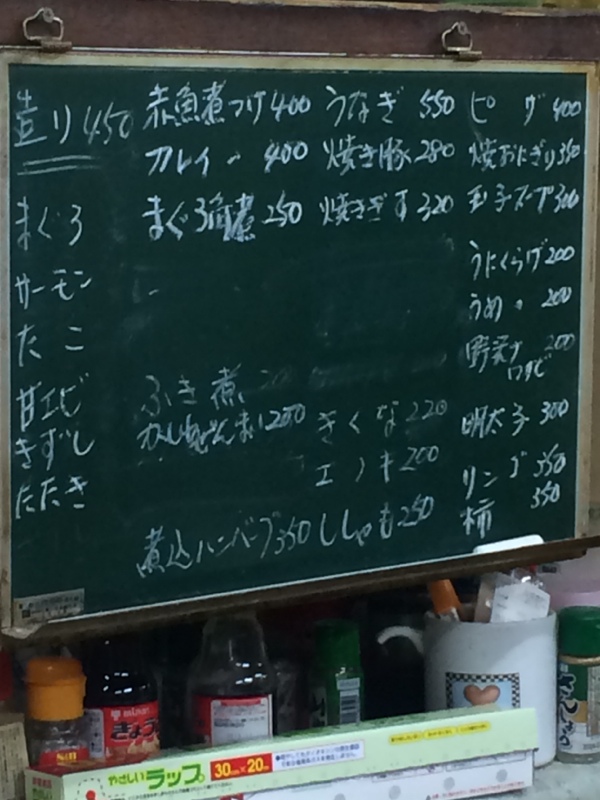 造り 450
まぐろ
サーモン
たこ
甘エビ
きずし
たたき
赤魚煮つけ 400
カレイ 〃 400
まぐろ角煮 250
ふき煮
かしわぜんまい 200
煮込ハンバーグ 350
うなぎ 550
焼き豚 280
焼きぎす 320
きくな 220
エノキ 200
ししゃも 250
ピザ 400
焼おにぎり 350
玉子スープ 300
うにくらげ 200
うめ 〃 200
野菜
ワサビ 200
明太子 300
リンゴ 350
柿 350
mizkan
やさしいラップ 30cm×20m